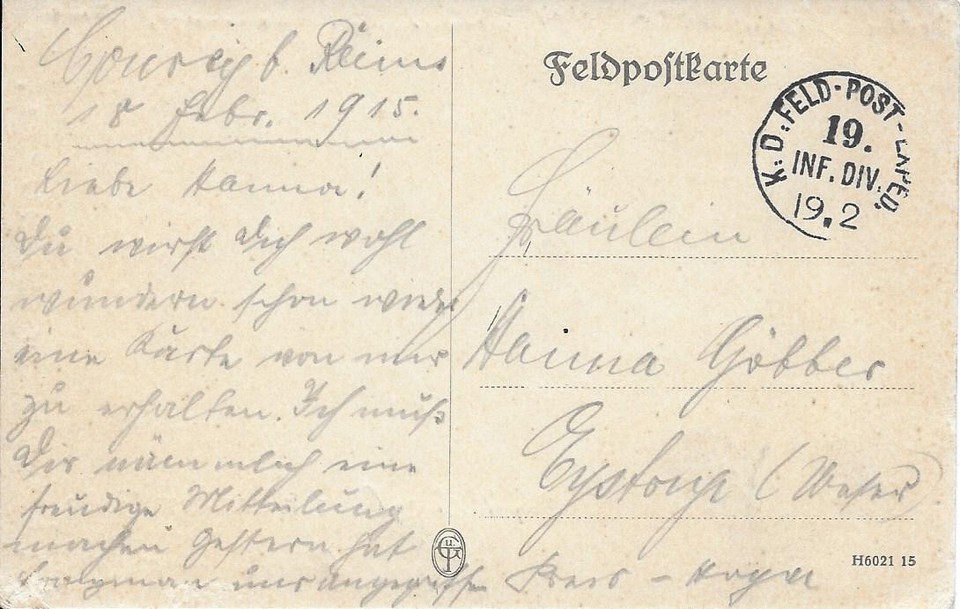 Courcy b. Reims
18 Febr. 1915.
Liebe Hanna!
Du wirst Dich wohl
wundern schon wieder
eine Karte von mir
zu erhalten. Ich muß
Dir nämmlich eine
freudige Mitteilung
machen Gestern hat
uns angegriffen
Feldpostkarte
K. D. FELD-POST-EXPED.
19.
INF. DIV.
19.2
Fräulein
Hanna Göbber
Eystrup (Weser)
Kreis - Hoya
H6021 15